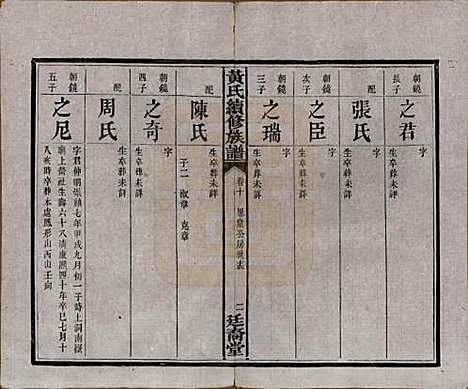 朝鏡
長子
之君
字
生卒葬未詳
配
張氏
朝鏡
次子
之臣
字
生卒葬未詳
朝鏡
三子
之瑞
字
生卒葬未詳
黃氏續修族譜
卷十
二
廷裔堂
配
陳氏
子二 淑章 克章
朝鏡
四子
之奇
字
生卒葬未詳
配
周氏
生卒葬未詳
朝鏡
五子
之尼
字君仲明崇禎七年甲戌九月初一子時上洞南嶽
廟上營社生壽六十八清康熙四十年辛巳七月十
八亥時卒葬本處鳳形山丙山壬向